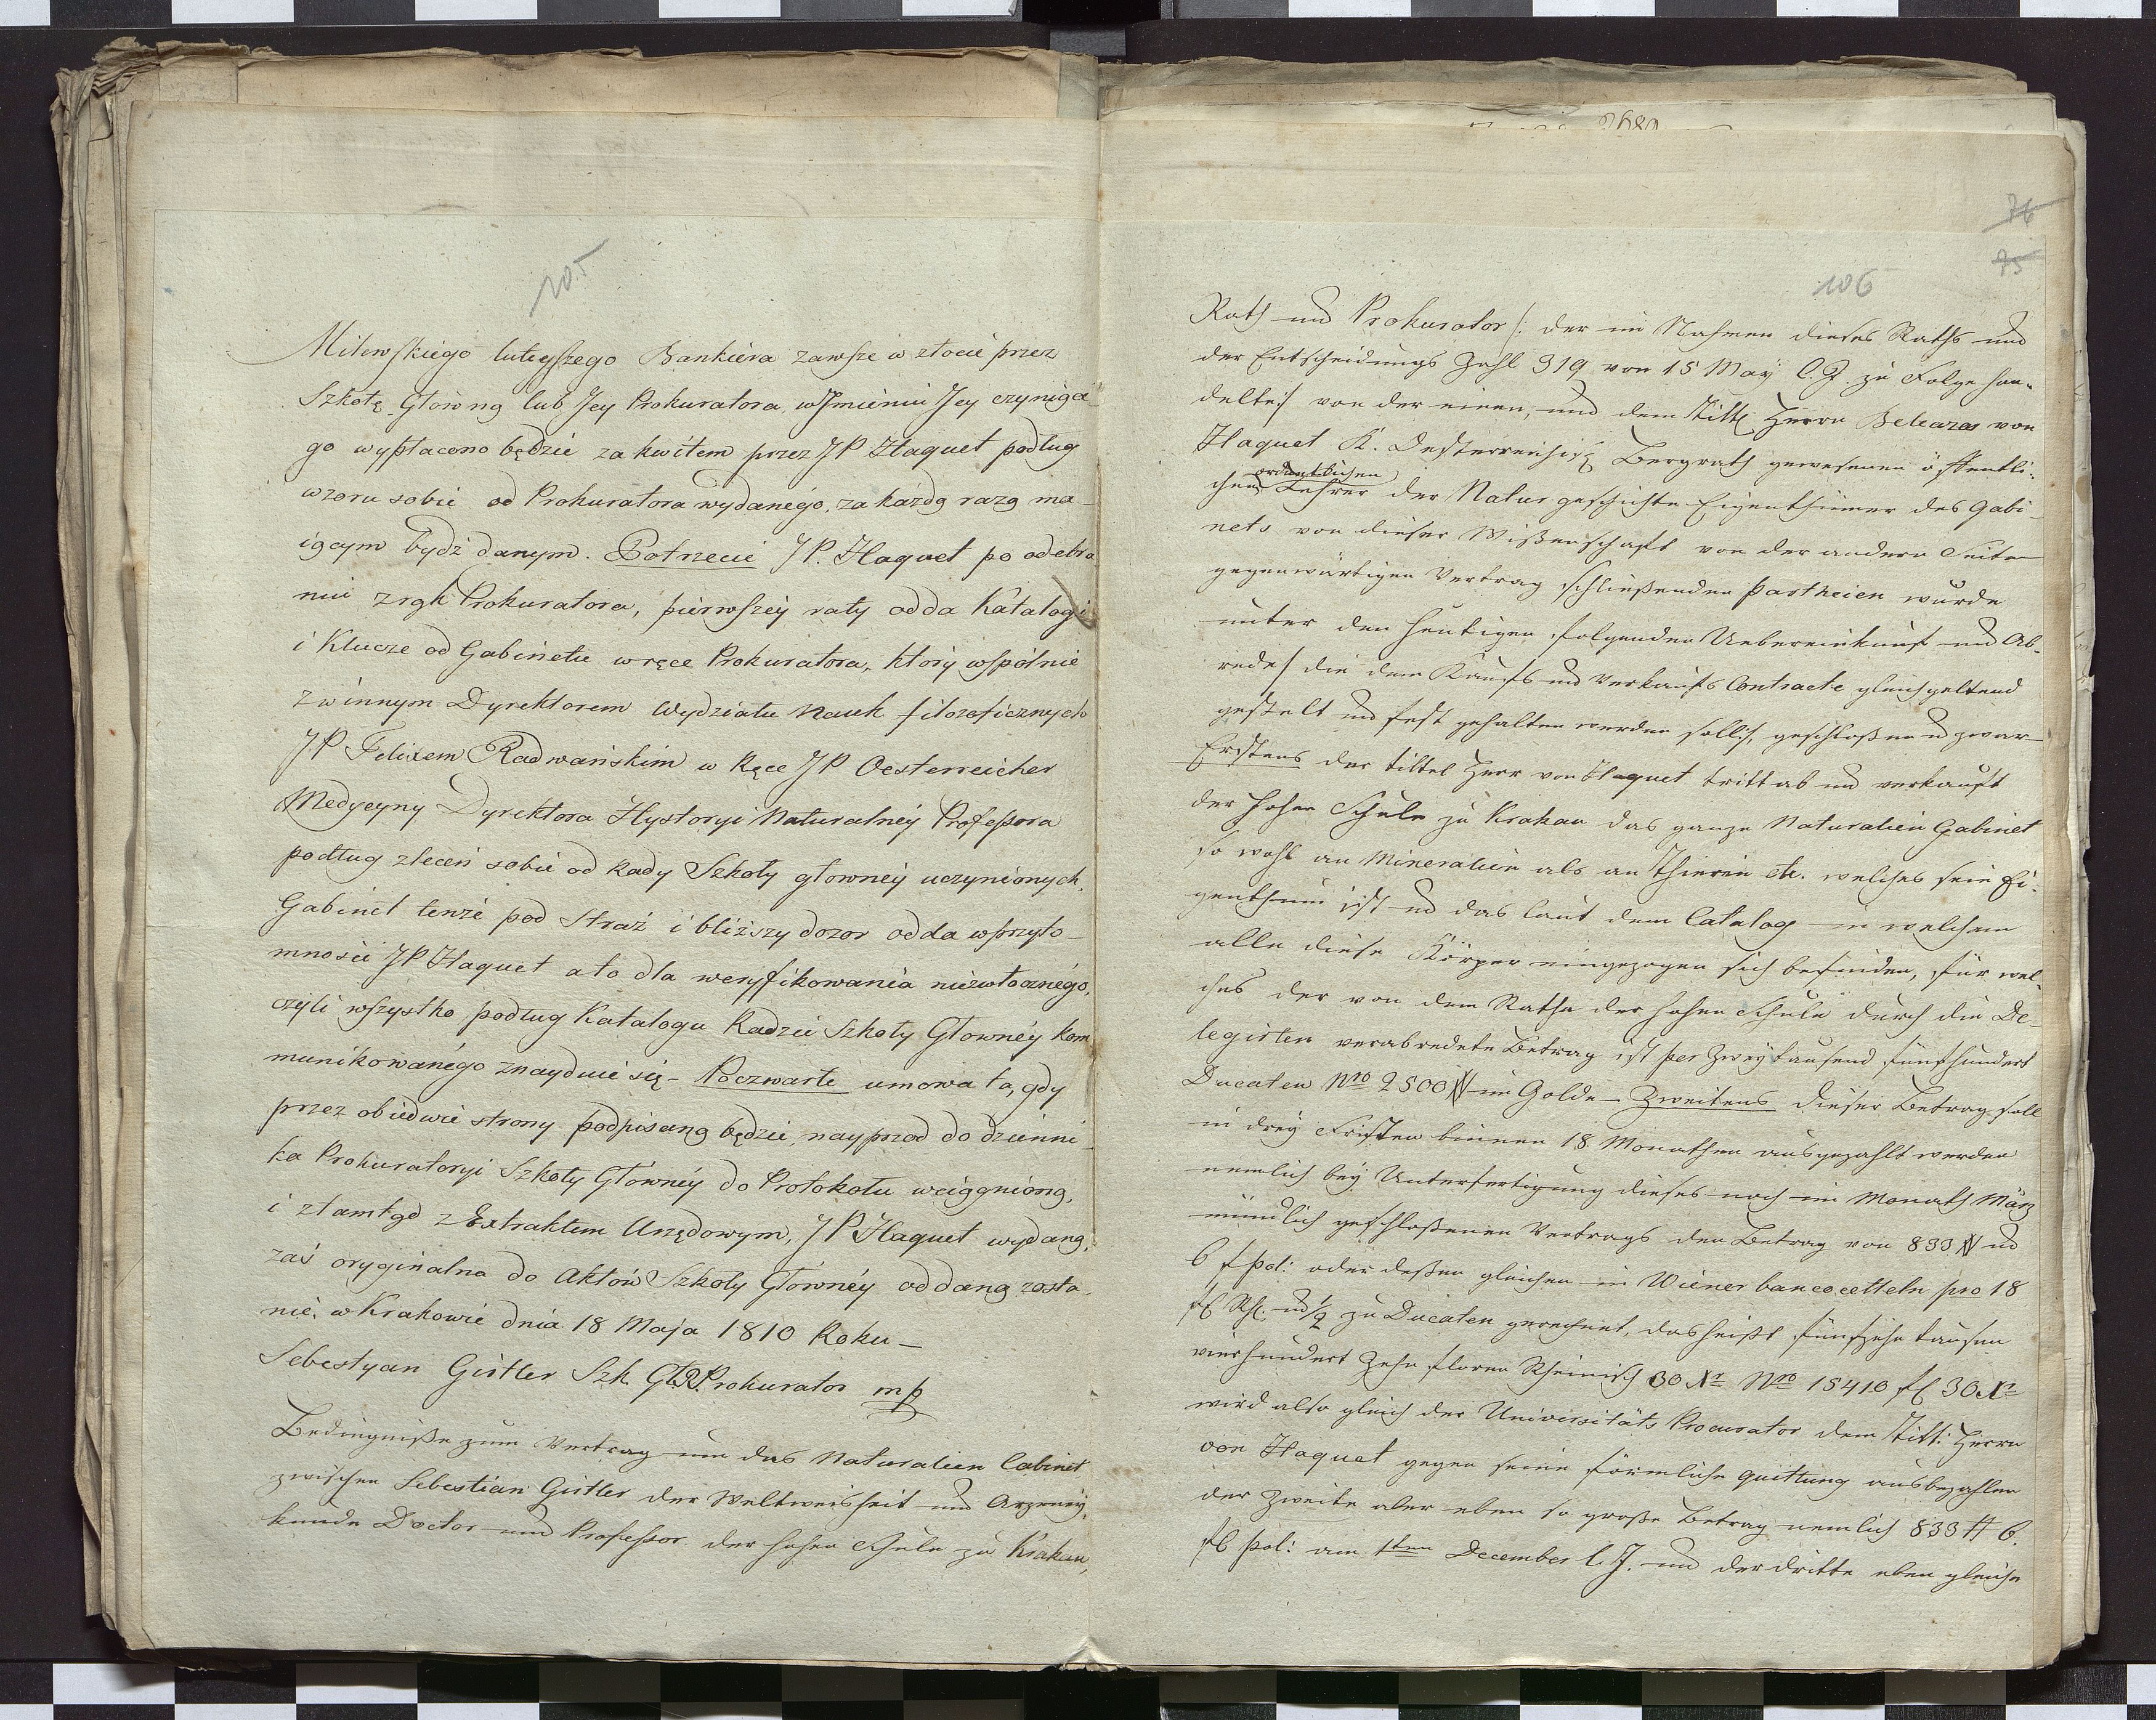 105
Milewskiego tuteyszego Bankiera zawsze w złocie przez
Szkołę Głowną lub Jey Prokuratora, w Jmieniu Jey czyniącé-
go wypłacono będzie za kwitem przez JP Haquet podług
wzoru sobie od Prokuratora wydanégo, za każdą razą ma-
iącym bydź danym. Potrzecie JP. Haquet po odebra
niu z rąk Prokuratora, pierwszey raty odda Katalogi
i Klucze od Gabinetu w ręce Prokuratora, który wspólnie
z w innym Dyrektorem Wydziału Nauk filozoficznych
JP Felixem Radwańskim w Ręce JP Oesterreicher
Medycyny Dyrektora Hystoryi Naturalnéy Professora
podług zleceń sobie od Rady Szkoły głownéy uczynionych,
Gabinet tenże pod Straż i bliższy dozor odda w przyto-
mności JP Haquet a to dla weryfikowania niezwłocznégo,
czyli wszystko podług Katalogu Radzie Szkoły Głownéy kom
munikowanégo znayduie się – Poczwarte umowa ta, gdy
przez obiedwie strony podpisaną będzie, nayprzod do dzienni-
ka Prokuratoryi Szkoły Głównéy do Protokołu wciągnioną,
i ztamtąd z Extraktem Urzędowym, JP Haquet wydaną,
zaś oryginalna do Aktów Szkoły Głównéy oddaną zosta-
nie. w Krakowie dnia 18 Maja 1810 Roku –
Sebestyan Girtler Szk Gł. R. Prokurator mp
Bedingniße zum Vertrag um das Naturalien Cabinet
zwischen Sebestian Girtler der Weltweisheit und Arzeney-
kunde Doctor und Professor der hohen Schule zu Krakau,
76
75
106
Rath und Prokurator /: der im Nahmen dieses Raths und
der Entscheidungs Zahl 319 von 15 May l. J. zu Folge han-
delte :/ von der einen, und dem Titl: Herrn Belcazas von
Haquet K. Oesterreichisch Bergrath gewesenen öffentli-
ordentlichen
chen Lehrer der Naturgeschichte Eigenthümer des Gabi-
nets von dieser Wißenschaft von der andern Seite
gegenwärtigen Vertrag schließenden Partheien wurde
unter den heutigen folgenden Uebereinkunft und Ab-
rede /: die dem Kaufs und Verkaufs Contracte gleichgeltend
gestelt und fest gehalten werden soll :/, geschloßen u zwar
Erstens der tittel Herr von Haquet tritt ab und verkauft
der hohen Schule zu Krakau das ganze Naturalien Gabinet
so wohl an Mineralien als an Thieren etc. welches sein Ei-
genthum ist und das laut dem Catalog in welchem
alle diese Körper eingezogen sich befinden, für wel-
ches der von dem Rathe der hohen Schule durch die De-
legirten verabredete Betrag ist per zwey tausend fünfhundert
Ducaten Nro 2500 # im Golde – Zweitens dieser Betrag soll
in drey Fristen binnen 18 Monathen ausgezahlt werden
nemlich bey Unterfertigung dieses noch im Monath März
mündlich geschloßenen Vertrags den Betrag von 833 # und
6 f pol: oder deßen gleichen in Wiener bancocetteln pro 18
fl Rh. und 1/2 zu Ducaten gerechnet, das heißt fünfzehn tausen
vierhundert zehn floren Rheinisch 30 Xr Nro 15410 fl 30 Xr
wird also gleich der Universitäts Procurator dem Titl: Herrn
von Haquet gegen seine förmliche quittung ausbezahlen
der zweite aber eben so große Betrag nemlich 833 # 6.
fl pol: am 1ten December l. J. und der dritte eben gleiche